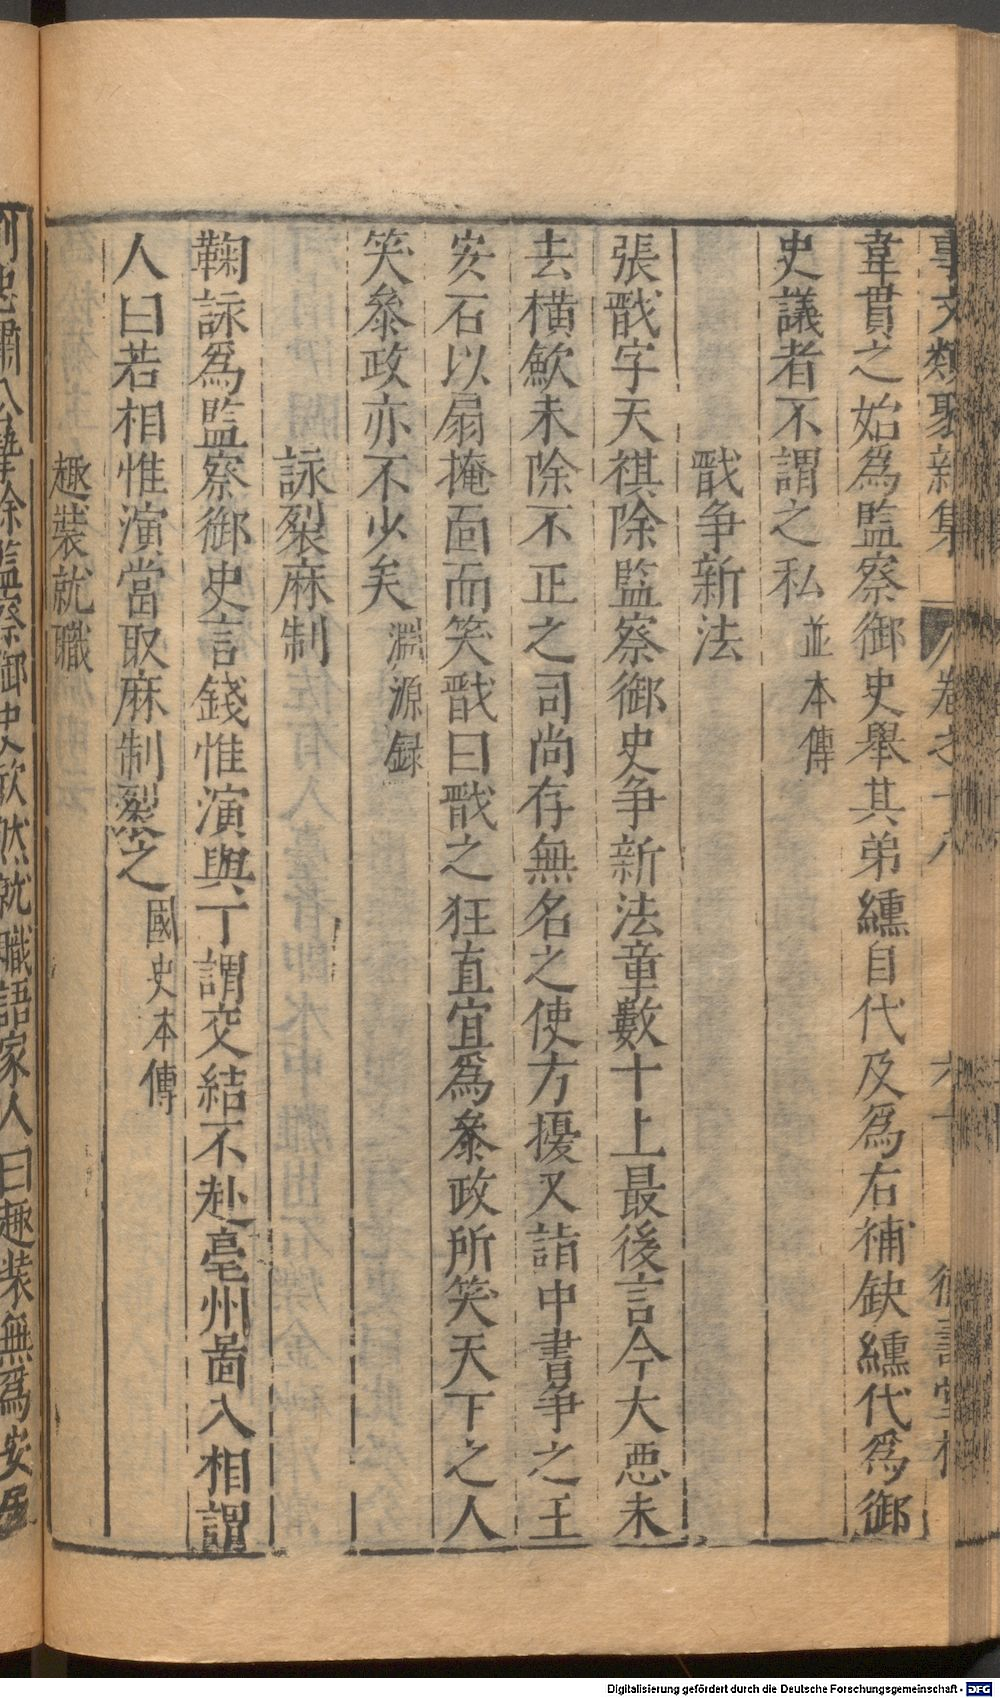 事文類聚新集 卷之十八
韋貫之始爲監察御史舉其弟纁自代及爲右補缺纁代爲御
史議者不謂之私並本傳
戩争新法
張戩字天祺除監察御史争新法章數十上最後言今大惡未
去橫歛未除不正之司尚存無名之使方擾又詣中書争之王
安石以扇掩面而笑戩曰戩之狂直宜爲叅政所笑天下之人
笑叅政亦不少矣淵源録
詠裂麻制
鞠詠爲監察御史言錢惟演與丁謂交結不赴亳州啚入相謂
人曰若相惟演當取麻制裂之國史本傳
趣裝就職
公肇除監察御史欣然就職語家人曰趣裝無爲安居
Digitalisierung gefördert durch die Deutsche Forschungsgemeinschaft - DFG